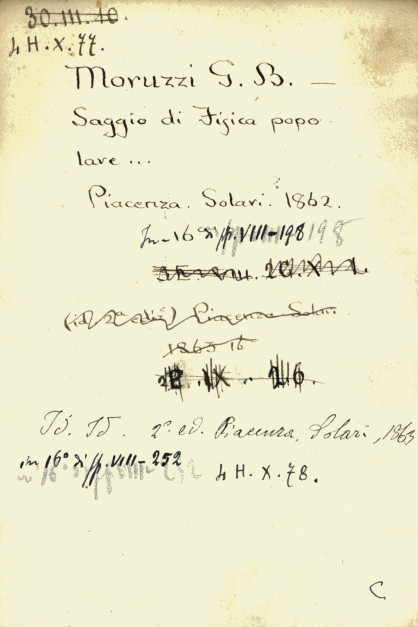 30.III.40.
4 H.X.77.
Moruzzi G. B. —
Saggio di Fisica popo
lare ...
Piacenza. Solari. 1862.
In-16° di pp. VIII-198 198
20.XVI.
(id. 2a ediz) Piacenza Solari.
1863 16
IX 26.
Id. Id. 2a ed. Piacenza, Solari, 1863
in 16° di pp. VIII-252
in 16° di pp. VIII-252 4 H.X.78.
C